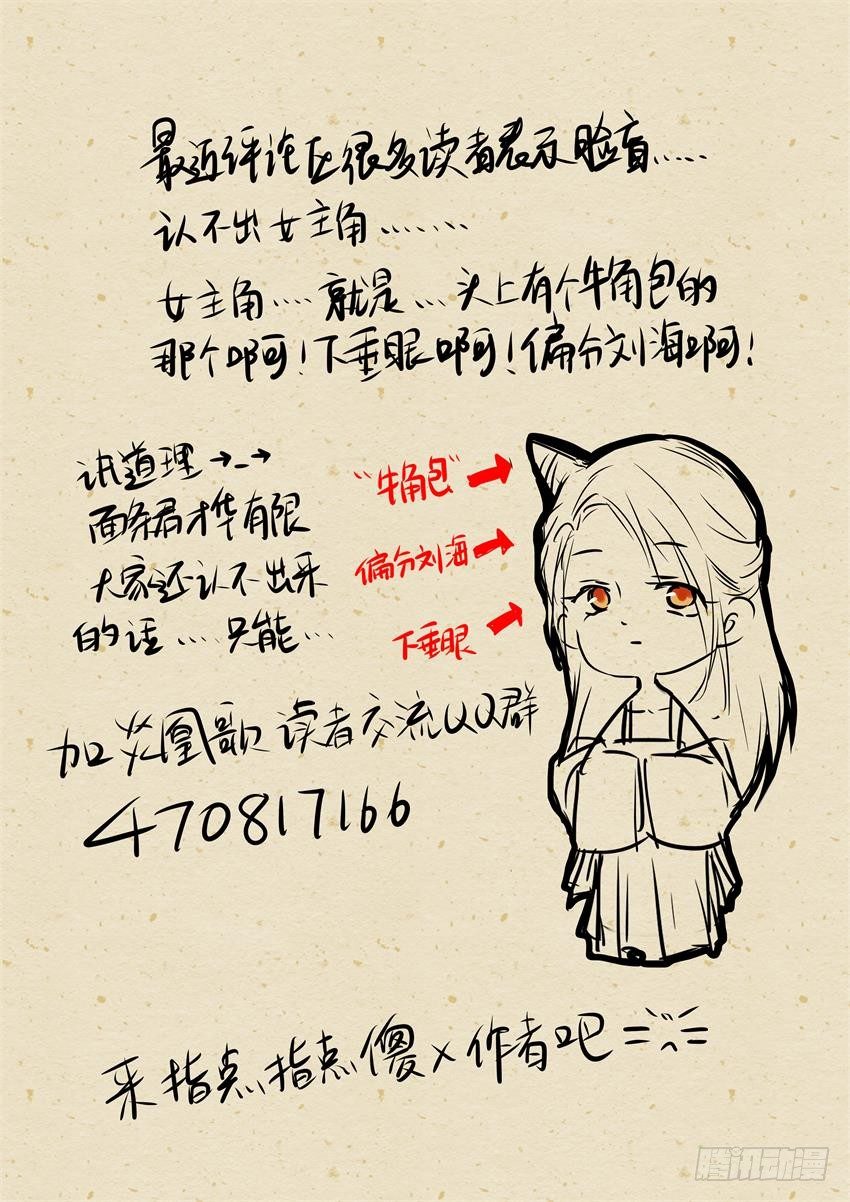 最近评论区很多读者表示脸盲……
认不出女主角……..
女主角….就是…头上有个牛角包的
那个啊!下垂眼啊!偏分刘海啊!
讲道理→_→
面条君才华有限
大家还认不出来
的话…只能…
“牛角包”
偏分刘海
下垂眼
加炎凰歌读者交流QQ群
470817166
来指点指点傻x作者吧
腾讯动漫